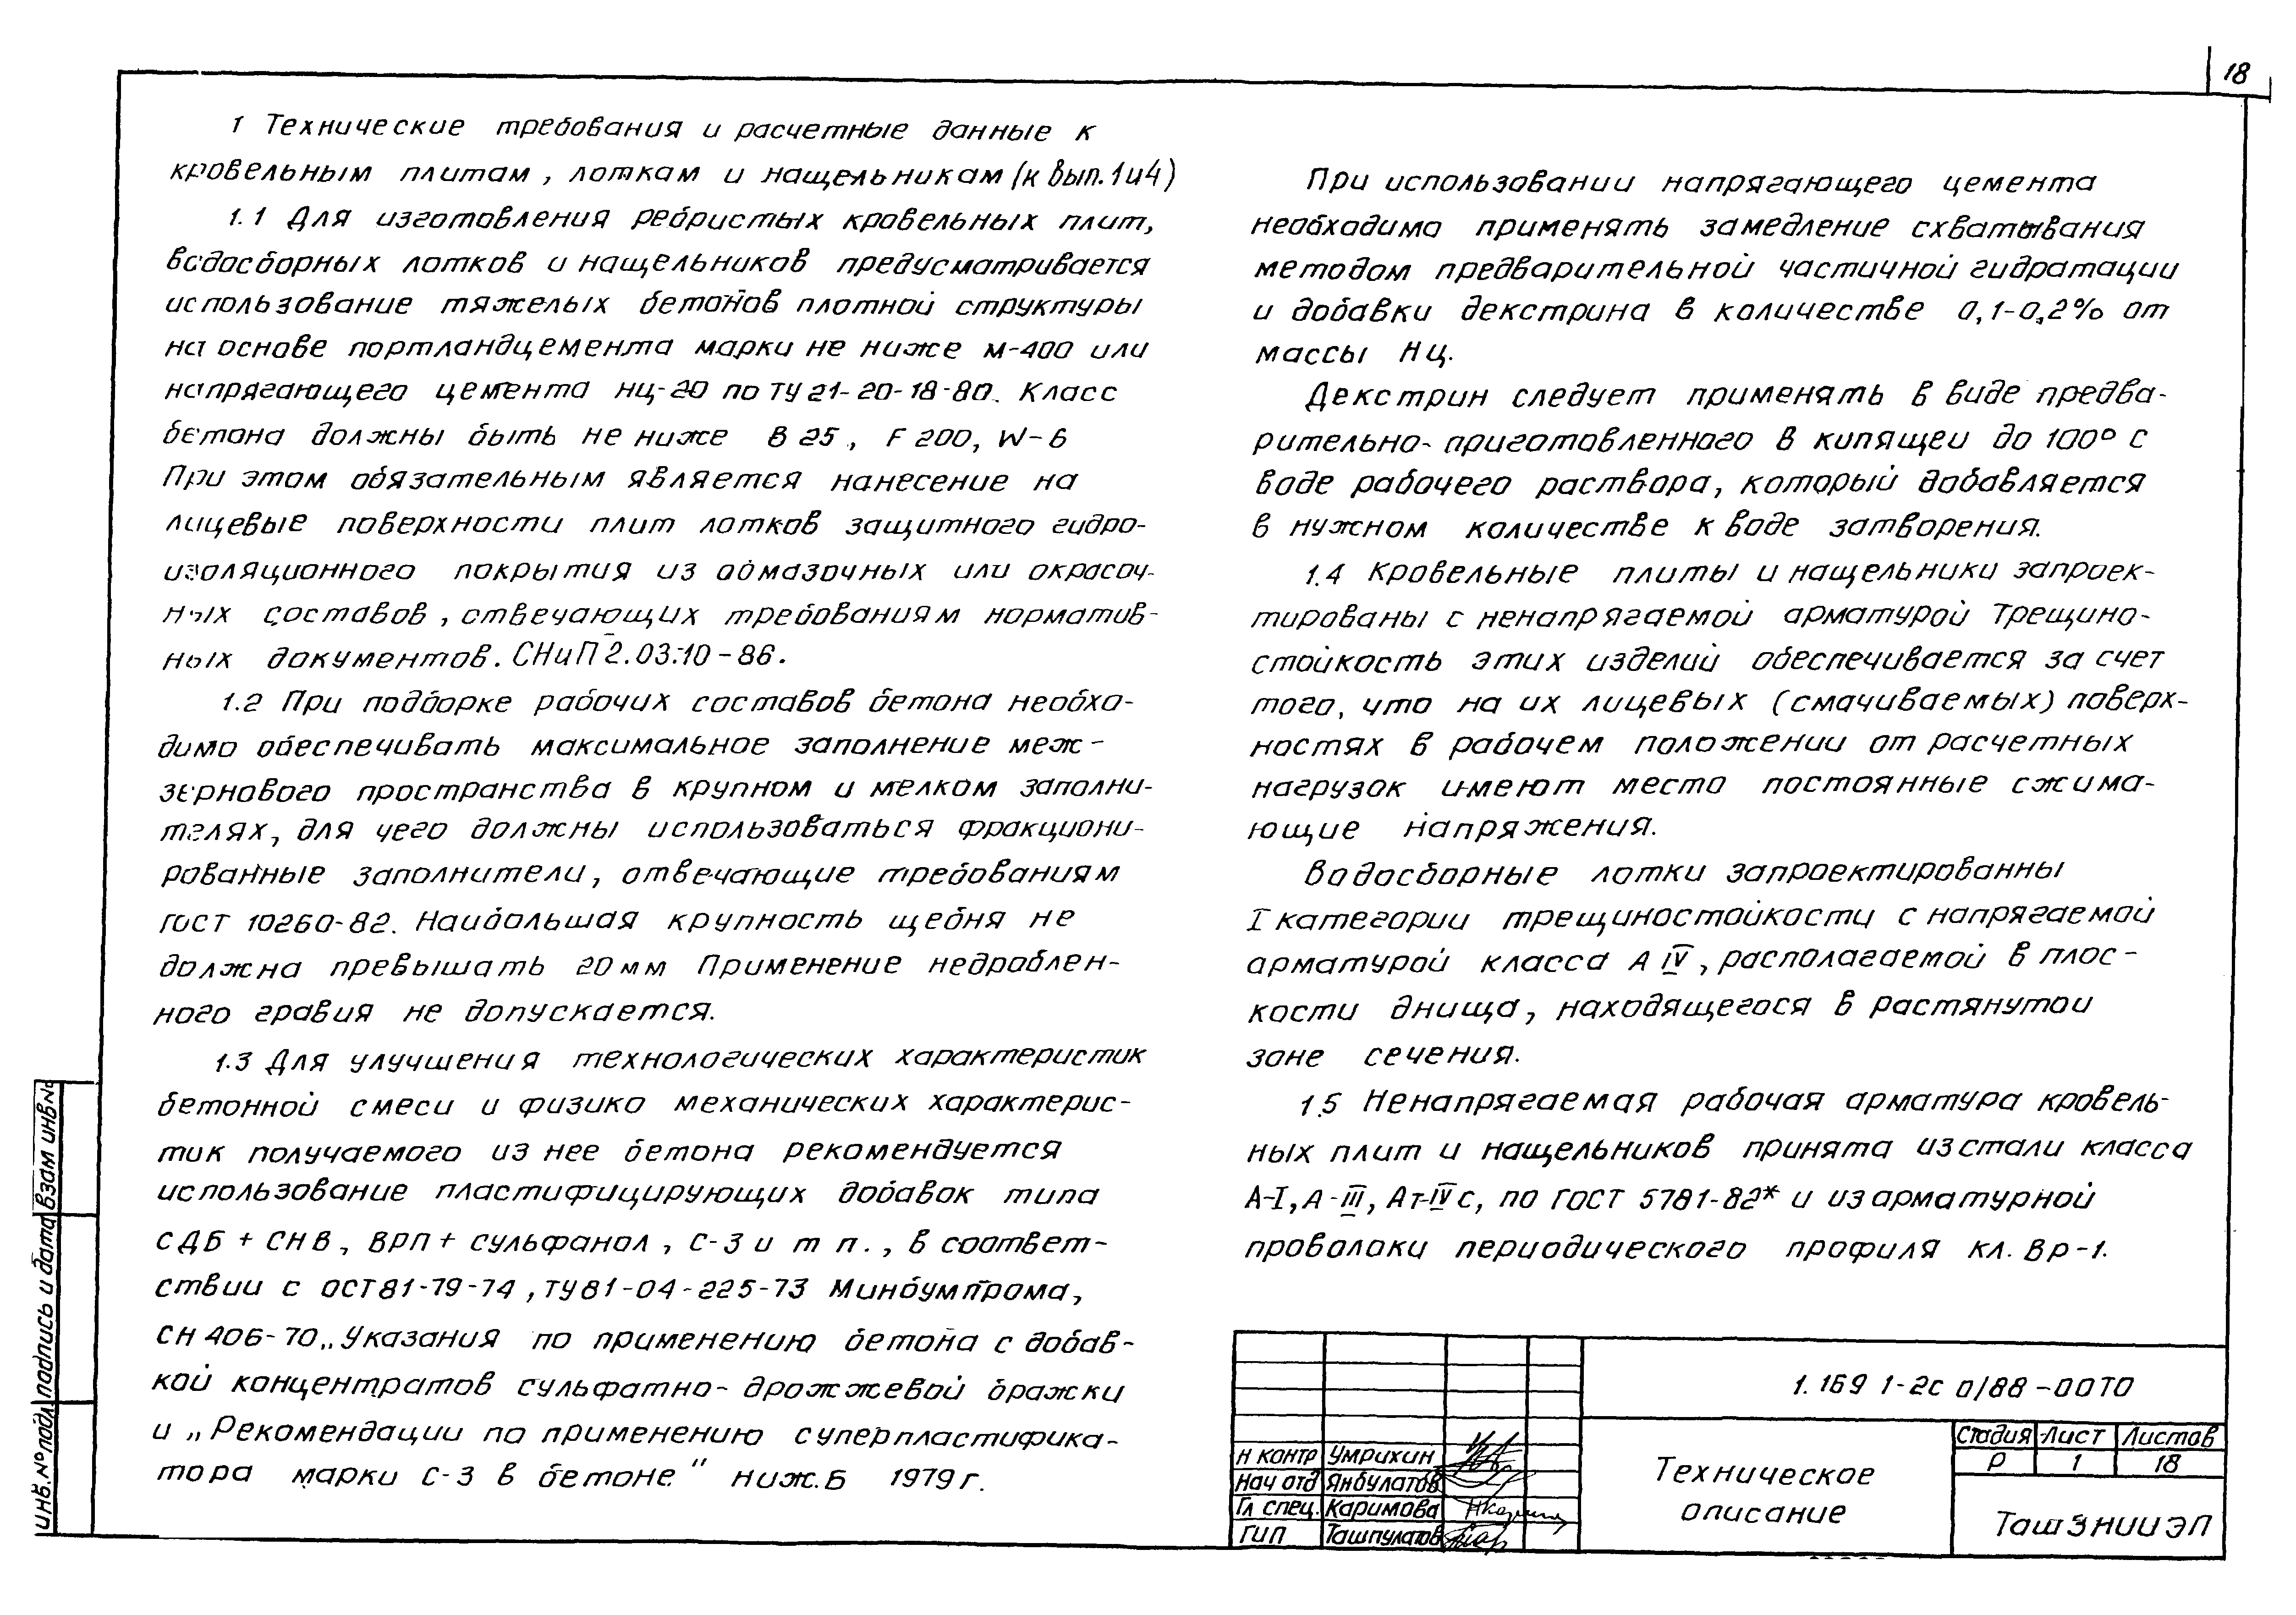 18
1 Технические требования и расчетные данные к
кровельным плитам, лоткам и нащельникам (к вып. 1 и 4)
1.1 Для изготовления ребристых кровельных плит,
водосборных лотков и нащельников предусматривается
использование тяжелых бетонов плотной структуры
на основе портландцемента марки не ниже М-400 или
напрягающего цемента НЦ-20 по ТУ 21-20-18-80. Класс
бетона должны быть не ниже В 25, F 200, W-6
При этом обязательным является нанесение на
лицевые поверхности плит лотков защитного гидро-
изоляционного покрытия из обмазочных или окрасоч-
ных составов, отвечающих требованиям норматив-
ных документов. СНиП 2.03.10-86.
1.2 При подборке рабочих составов бетона необхо-
димо обеспечивать максимальное заполнение меж-
зернового пространства в крупном и мелком заполни-
телях, для чего должны использоваться фракциони-
рованные заполнители, отвечающие требованиям
ГОСТ 10260-82. Наибольшая крупность щебня не
должна превышать 20 мм Применение недроблен-
ного гравия не допускается.
1.3 Для улучшения технологических характеристик
бетонной смеси и физико механических характерис-
тик получаемого из нее бетона рекомендуется
использование пластифицирующих добавок типа
СДБ + СНВ, ВРП + сульфанол, С-3 и т п., в соответ-
ствии с ОСТ 81-79-74, ТУ 81-04-225-73 Минбумпрома,
СН 406-70 „Указания по применению бетона с добав-
кой концентратов сульфатно-дрожжевой бражки
и „Рекомендации по применению суперпластифика-
тора марки С-3 в бетоне" НИЖ.Б 1979 г.
При использовании напрягающего цемента
необходимо применять замедление схватывания
методом предварительной частичной гидратации
и добавки декстрина в количестве 0,1-0,2% от
массы НЦ.
Декстрин следует применять в виде предва-
рительно-приготовленного в кипящеи до 100° С
воде рабочего раствора, который добавляется
в нужном количестве к воде затворения.
1.4 Кровельные плиты и нащельники запроек-
тированы с ненапрягаемой арматурой Трещино-
стойкость этих изделий обеспечивается за счет
того, что на их лицевых (смачиваемых) поверх-
ностях в рабочем положении от расчетных
нагрузок имеют место постоянные сжима-
ющие напряжения.
Водосборные лотки запроектированны
I категории трещиностойкости с напрягаемой
арматурой класса А IV, располагаемой в плос-
кости днища, находящегося в растянутои
зоне сечения.
1.5 Ненапрягаемая рабочая арматура кровель-
ных плит и нащельников принята из стали класса
А-I, А-III, Ат-IVс, по ГОСТ 5781-82* и из арматурной
проволоки периодического профиля кл. Вр-1.
1.169 1-2с 0/88-00ТО
Н контр Умрихин
Нач отд Янбулатов
Гл спец. Каримова
ГИП Ташпулатов
Техническое
описание
Стадия Лист Листов
Р 1 18
ТашЗНИИЭП
Инв. № подл подпись и дата Взам инв№